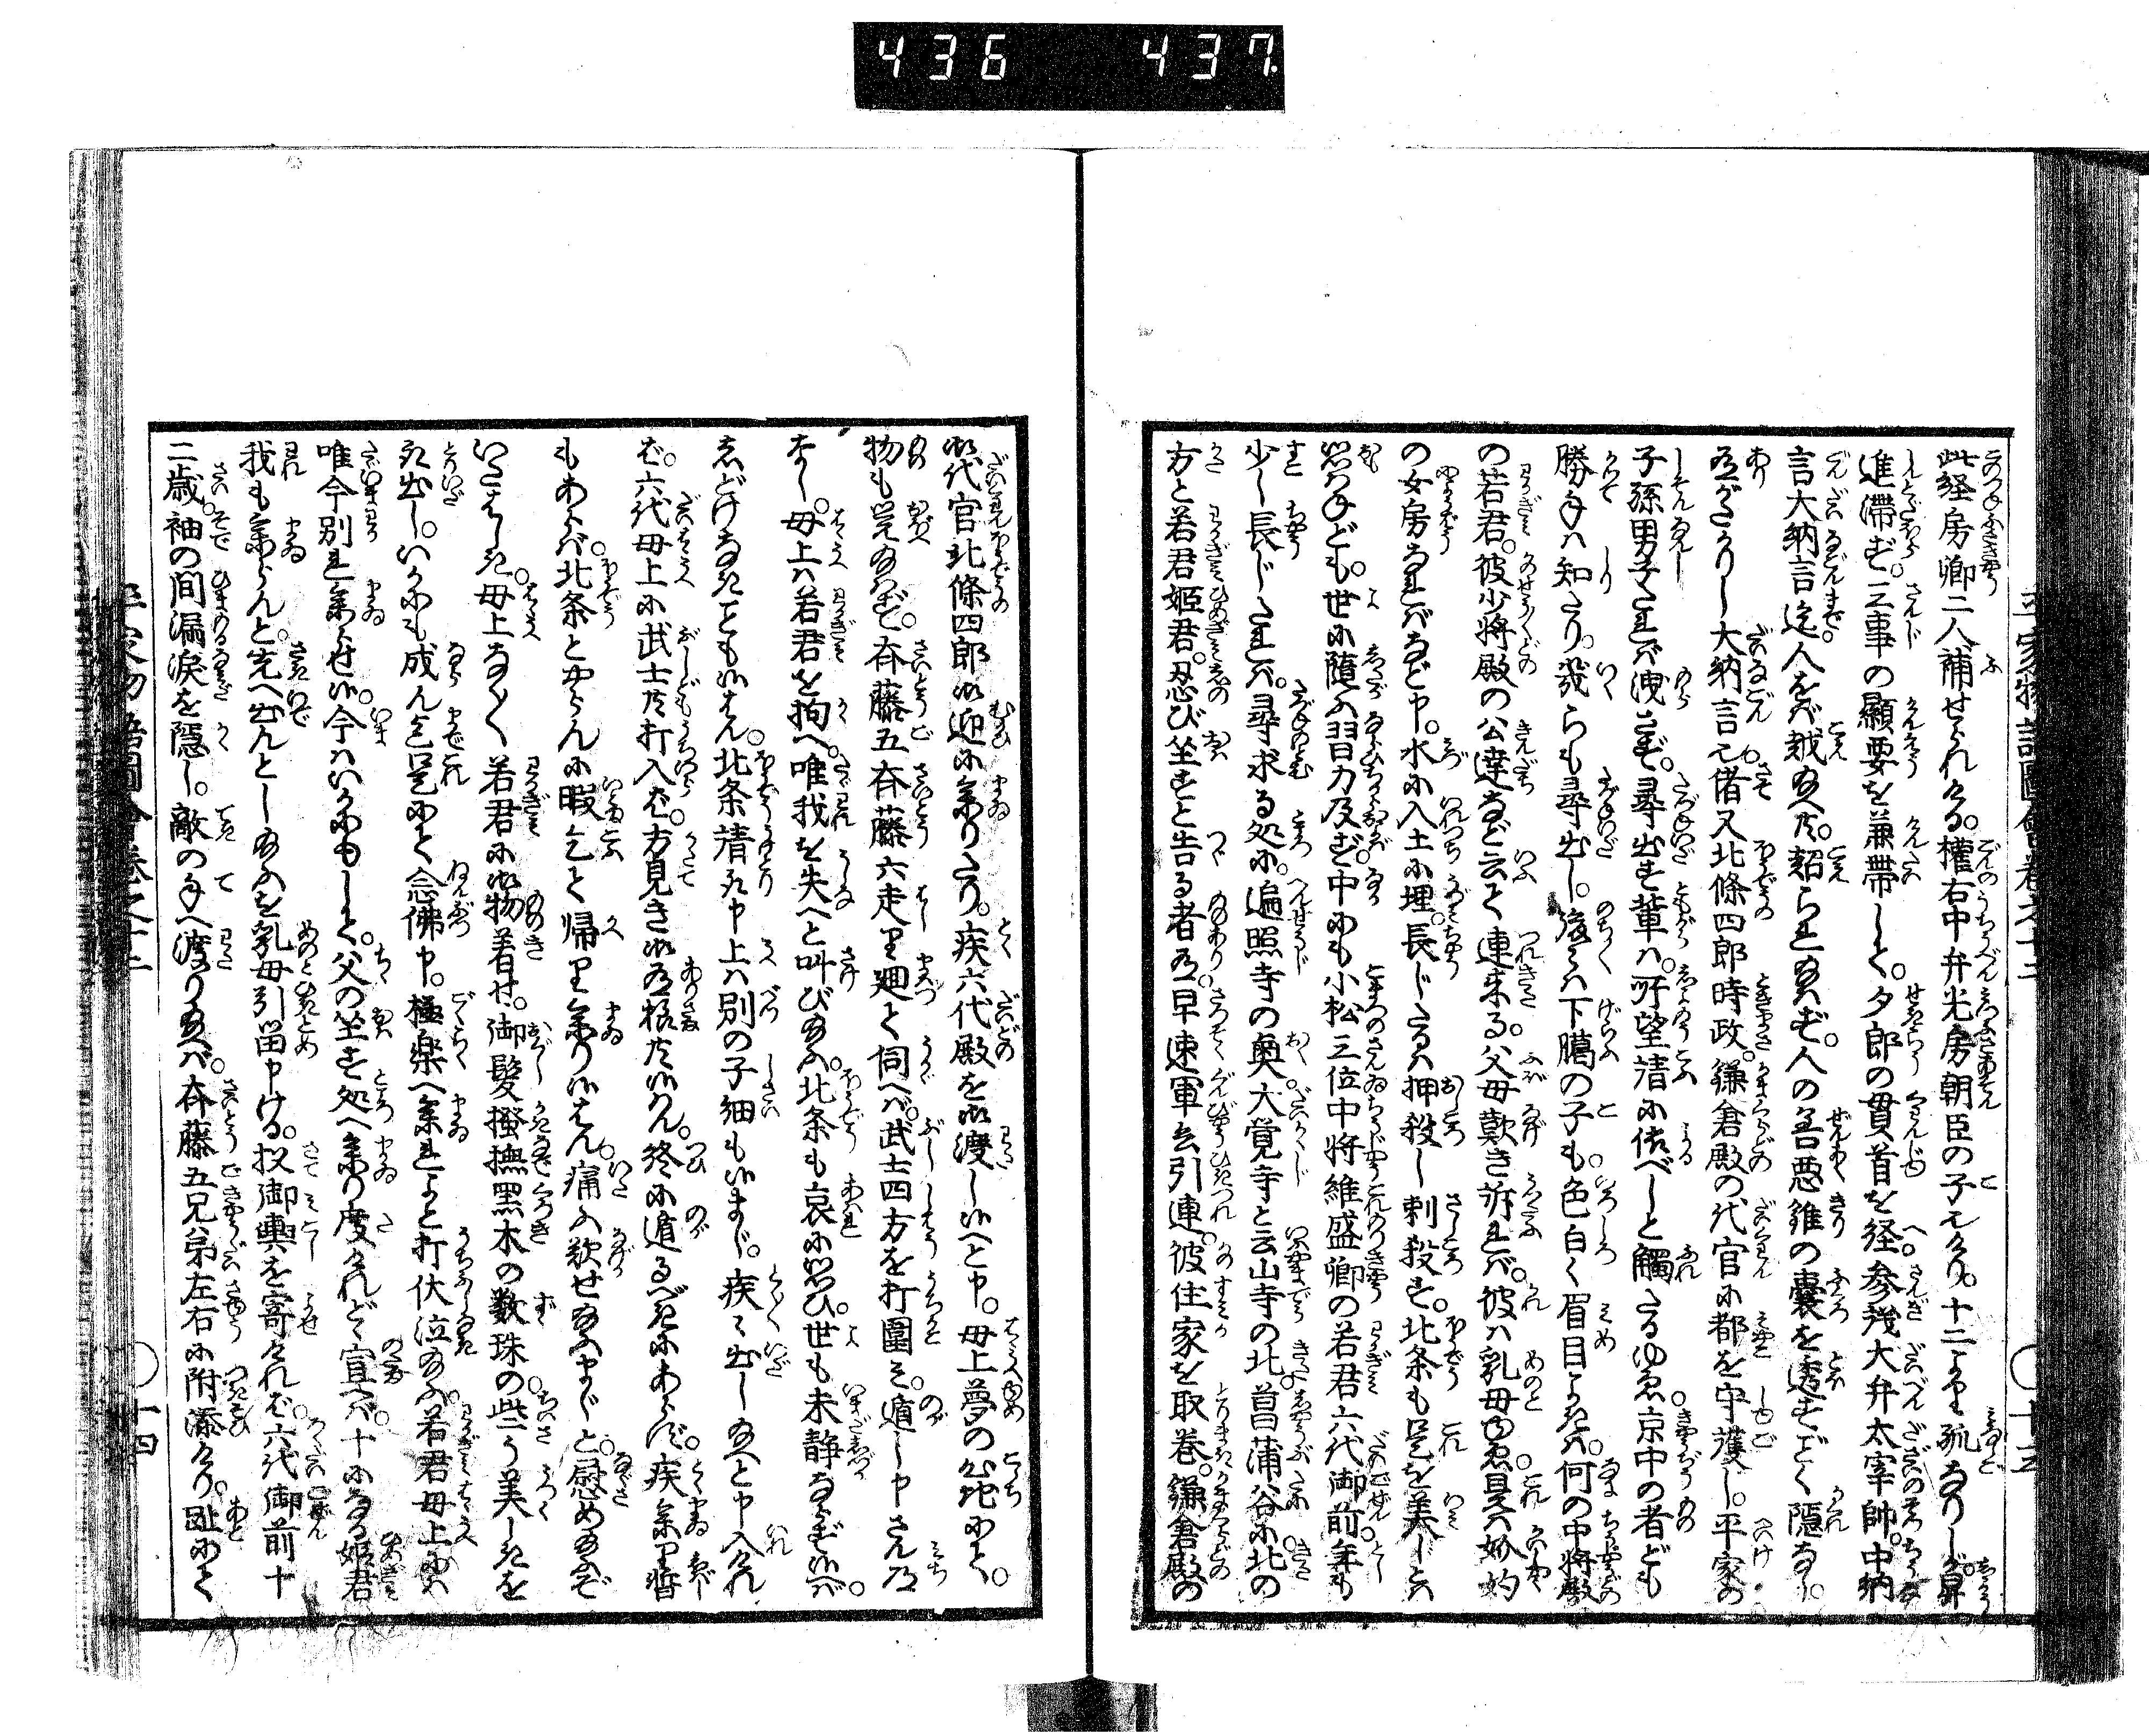 436 437
此経房卿二人補せられける。権右中弁光房朝臣の子也けり。十二より孤なりしが。昇
進滞ず。三事の顕要を兼帯して。夕郎の貫首を経。参議大弁太宰帥。中納
言大納言迄。人をば越給へ共。越られ給はず。人の善悪錐の嚢を透すごとく隠なし。
有がたかりし大納言也。偖又北條四郎時政。鎌倉殿の代官に都を守護し。平家の
子孫男子たれば洩さず。尋出す輩は。所望請に依べしと触たるゆゑ。京中の者ども
勝手は知たり。幾らも尋出し。後々は下﨟の子も。色白く眉目よきは。何の中将殿
の若君。彼少将殿の公達など云て連来る。父母歎き訴れば。彼は乳母ゆゑ。是は妙妁
の女房なればなど申。水に入土に埋。長じたるは押殺し刺殺す。北条も是を美しとは
思はねども。世に随ふ習力及ず。中にも小松三位中将維盛卿の若君六代御前。年も
少し長じたれば。尋求る処に。遍照寺の奥。大覚寺と云山寺の北。菖蒲谷に北の
方と若君姫君。忍び坐すと告る者有。早速軍兵引連。彼住家を取巻。鎌倉殿の
御代官北條四郎御迎に参りたり。疾六代殿を御渡し候へと申。母上夢の心地にて。
物も覚給はず。斉藤五斉藤六走り廻て伺へば。武士四方を打囲み。遁し申さん道
なし。母上は若君を拘へ。唯我を失へと叫び給ふ。北条も哀に思ひ。世も未静ならず候へば。
しどけなきこともいはん。北条請取申上は別の子細も候まじ。疾々出し給へと申入けれ
ば。六代母上に武士共打入ば。方見き御有様共候はん。終に遁るべきにあらず。疾参り暫
もあらば。北条とやらんに暇乞て帰り参り候はん。痛ふ歎せ給ふまじと。慰め給ふぞ
いたはしき。母上なくなく若君に御物着せ。御髪掻撫黒木の数珠の些う美しきを
取出し。いかにも成んまで是にて念佛申。極楽へ参れよと打伏泣給ふ。若君母上には
唯今別れ参らせ候。今はいかにもして。父の坐す処へ参り度けれど宣へば。十になる姫君
我も参らんと。先へ出んとし給ふを乳母引留申ける。扨御輿を寄ければ。六代御前十
二歳。袖の間漏涙を隠し。敵の手へ渡り給へば。斉藤五兄弟左右に附添けり。趾にて